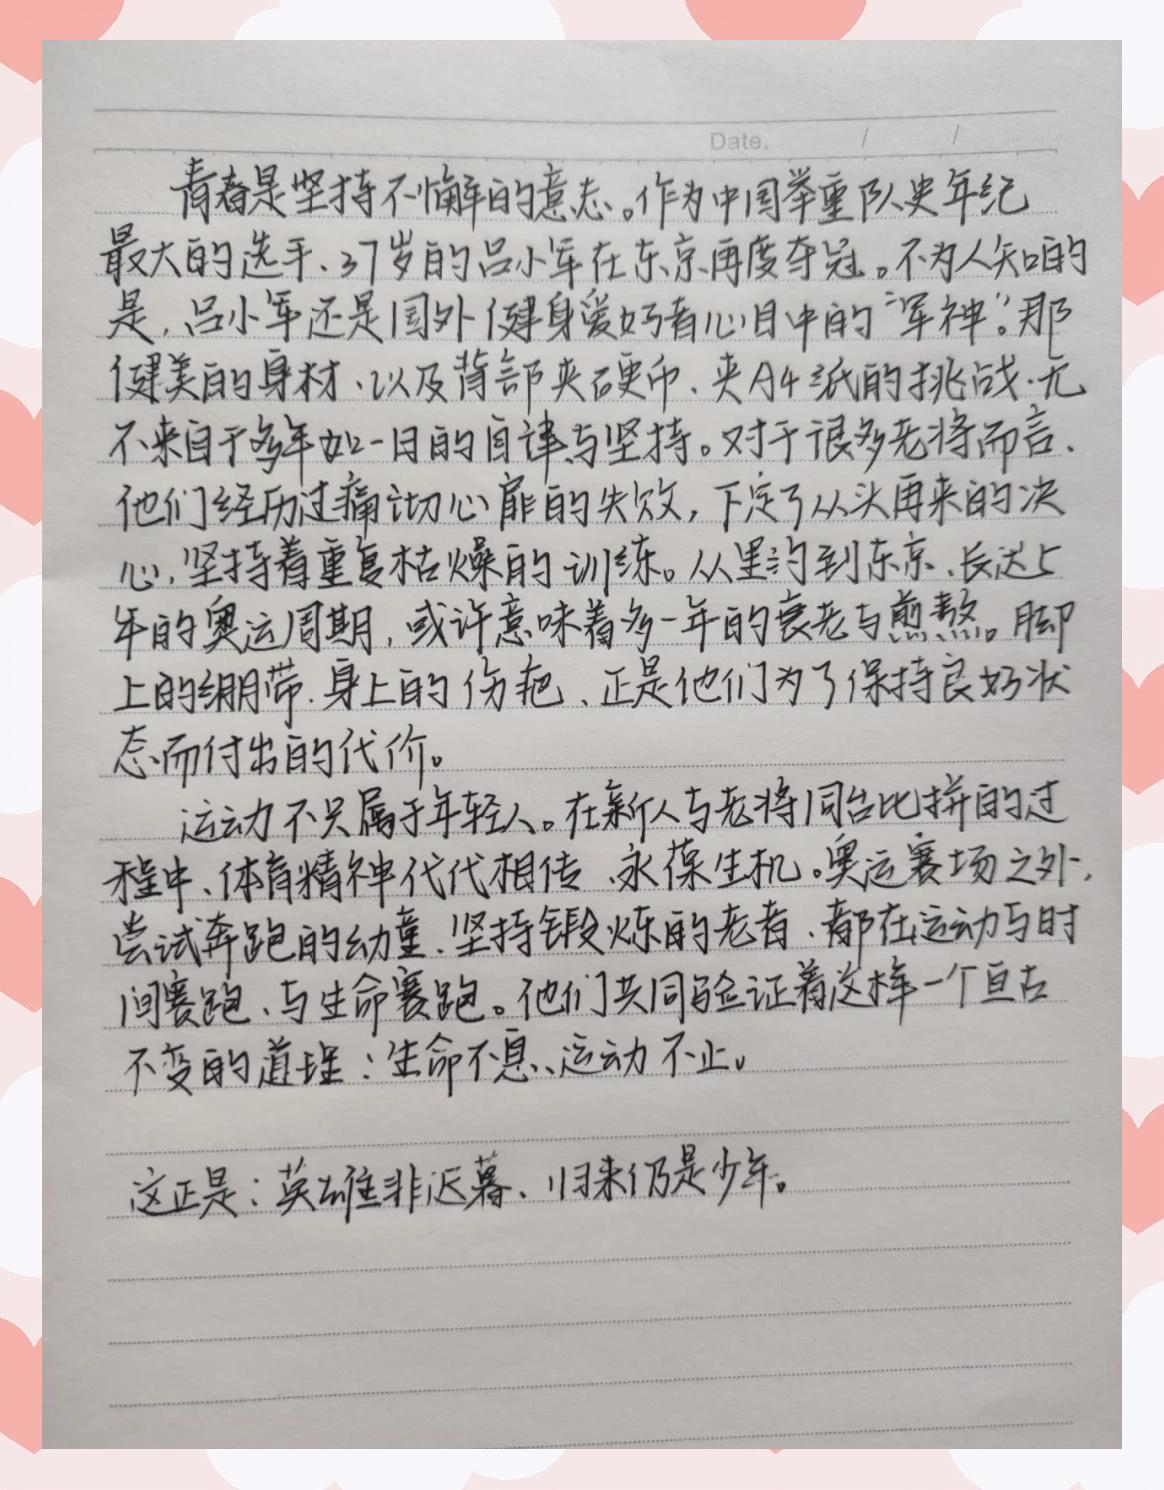 Date. / /
青春是坚持不懈的意志。作为中国举重队史年纪
最大的选手、37岁的吕小军在东京再度夺冠。不为人知的
是,吕小军还是国外健身爱好者心目中的“军神”。那
健美的身材、以及背部夹硬币、夹A4纸的挑战、无
不来自于多年如一日的自律与坚持。对于很多老将而言、
他们经历过痛切心扉的失败,下定了从头再来的决
心,坚持着重复枯燥的训练。从里约到东京、长达5
年的奥运周期,或许意味着多一年的衰老与煎熬。脚
上的绷带、身上的伤疤、正是他们为了保持良好状
态而付出的代价。
运动不只属于年轻人。在新人与老将同台比拼的过
程中、体育精神代代相传、永葆生机。奥运赛场之外、
尝试奔跑的幼童、坚持锻炼的老者、都在运动与时
间赛跑、与生命赛跑。他们共同验证着这样一个亘古
不变的道理:生命不息、运动不止。
这正是:英雄非迟暮、归来仍是少年。